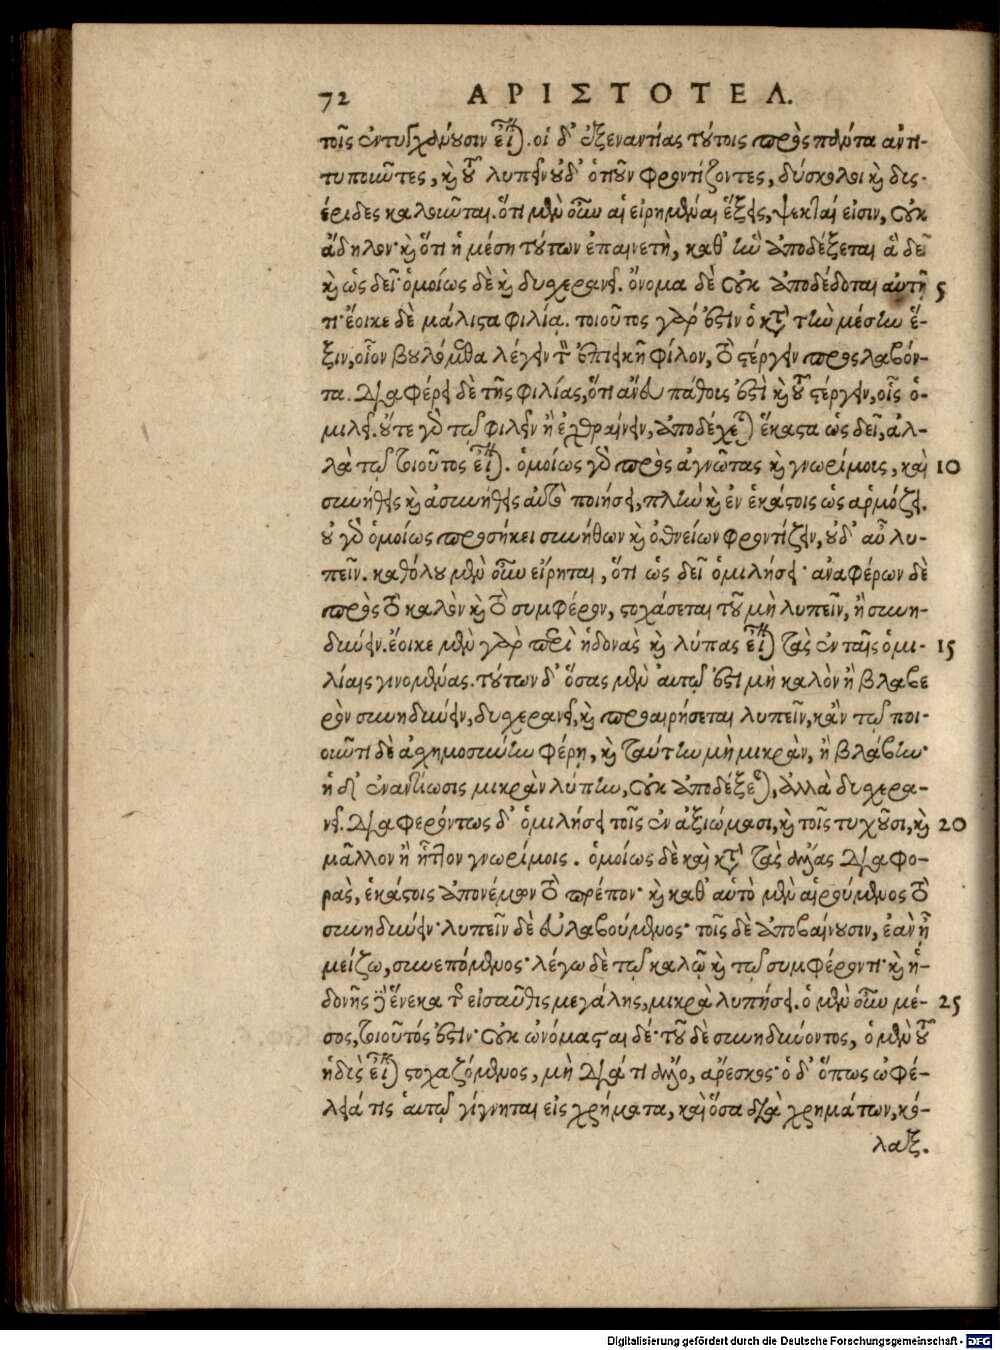 72 ΑΡΙΣΤΟΤΕΛ.
τοῖς ἐντυγχάνουσιν εἶναι. οἱ δ' ἐξεναντίας τούτοις πρὸς πάντα ἀντι-
τυποιῶντες, καὶ τοῦ λυπεῖν οὐδ' ὁτιοῦν φροντίζοντες, δύσκολοι καὶ δυς-
έριδες καλοῦνται. ὅτι μὲν οὖν αἱ εἰρημέναι ἕξεις, ψεκταί εἰσιν, οὐκ
ἄδηλον· καὶ ὅτι ἡ μέση τούτων ἐπαινετὴ, καθ' ἣν ἀποδέξεται ἃ δεῖ
καὶ ὡς δεῖ· ὁμοίως δὲ καὶ δυχερανεῖ. ὄνομα δὲ οὐκ ἀποδέδοται αὐτῇ 5
τι· ἔοικε δὲ μάλιστα φιλίᾳ. τοιοῦτος γάρ ἐστιν ὁ κατὰ τὴν μέσην ἕ-
ξιν, οἷον βουλόμεθα λέγειν τὸν ἐπιεικῆ φίλον, τὸ στέργειν προσλαβόν-
τα. διαφέρει δὲ τῆς φιλίας, ὅτι ἄνευ πάθους ἐστὶ καὶ τοῦ στέργειν, οἷς ὁ-
μιλεῖ. οὔτε γὰρ τῷ φιλεῖν ἢ ἐχθραίνειν, ἀποδέχεται ἕκαστα ὡς δεῖ, ἀλ-
λὰ τῷ τοιοῦτος εἶναι. ὁμοίως γὰρ πρὸς ἀγνῶτας καὶ γνωρίμους, καὶ 10
συνήθεις καὶ ἀσυνήθεις αὐτὸ ποιήσει, πλὴν καὶ ἐν ἑκάστοις ὡς ἁρμόζει.
οὐ γὰρ ὁμοίως προσήκει συνήθων καὶ ὀθνείων φροντίζειν, οὐδ' αὖ λυ-
πεῖν. καθόλου μὲν οὖν εἴρηται, ὅτι ὡς δεῖ ὁμιλήσει· ἀναφέρων δὲ
πρὸς τὸ καλὸν καὶ τὸ συμφέρον, στοχάσεται τοῦ μὴ λυπεῖν, ἢ συνη-
δύνειν. ἔοικε μὲν γὰρ περὶ ἡδονὰς καὶ λύπας εἶναι τὰς ἐν ταῖς ὁμι- 15
λίαις γινομένας. τούτων δ' ὅσας μὲν αὐτῷ ἐστὶ μὴ καλὸν ἢ βλαβε
ρὸν συνηδύνειν, δυχερανεῖ, καὶ προαιρήσεται λυπεῖν, κἂν τῷ ποι-
οῦντι δὲ ἀχημοσύνην φέρῃ, καὶ ταύτην μὴ μικρὰν, ἢ βλάβην·
ἡ δ' ἐναντίωσις μικρὰν λύπην, οὐκ ἀποδέξεται, ἀλλὰ δυχερα-
νεῖ. διαφερόντως δ' ὁμιλήσει τοῖς ἐν ἀξιώμασι, καὶ τοῖς τυχοῦσι, καὶ 20
μᾶλλον ἢ ἧττον γνωρίμοις. ὁμοίως δὲ καὶ κατὰ τὰς ἄλλας διαφο-
ρὰς, ἑκάστοις ἀπονέμων τὸ πρέπον· καὶ καθ' αὑτὸ μὲν αἱρούμενος τὸ
συνηδύνειν· λυπεῖν δὲ εὐλαβούμενος· τοῖς δὲ ἀποβαίνουσιν, ἐὰν ᾖ
μείζω, συνεπόμενος· λέγω δὲ τῷ καλῷ καὶ τῷ συμφέροντι· καὶ ἡ-
δονῆς δ' ἕνεκα τῆς εἰσαῦθις μεγάλης, μικρὰ λυπήσει. ὁ μὲν οὖν μέ- 25
σος, τοιοῦτός ἐστιν· οὐκ ὠνόμασται δέ· τοῦ δὲ συνηδύνοντος, ὁ μὲν τοῦ
ἡδὺς εἶναι στοχαζόμενος, μὴ διά τι ἄλλο, ἄρεσκος· ὁ δ' ὅπως ὠφέ-
λειά τις αὑτῷ γίγνηται εἰς χρήματα, καὶ ὅσα διὰ χρημάτων, κό-
λαξ.
Digitalisierung gefördert durch die Deutsche Forschungsgemeinschaft - DFG